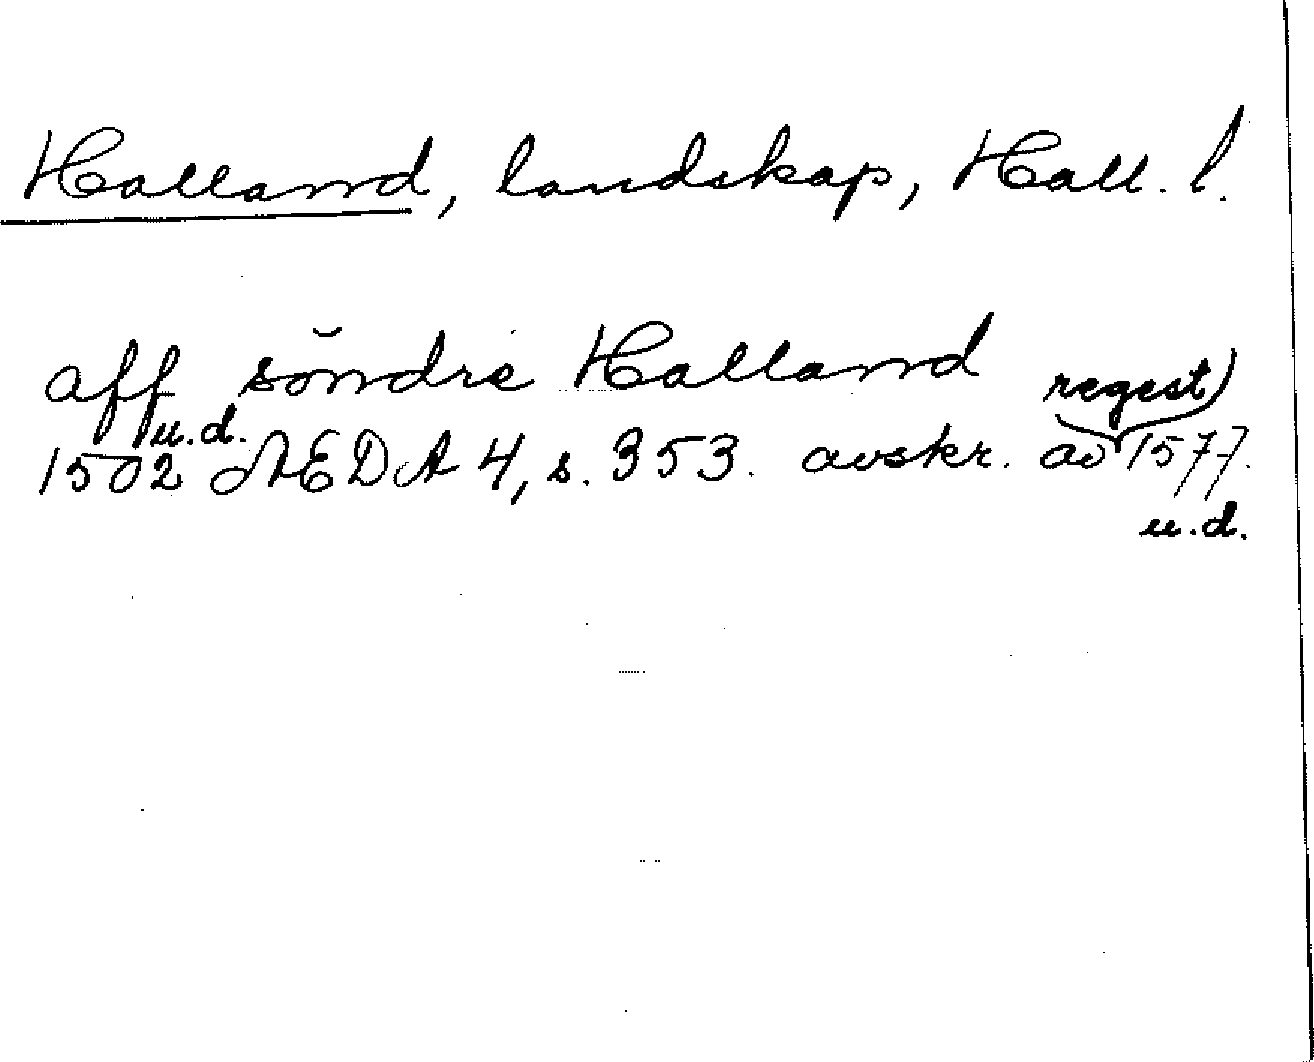 Halland, landskap, Hall. l.
aff söndre Halland
1502 u.d. ÆDA 4, s. 353. avskr. av regest) 1577.
u.d.